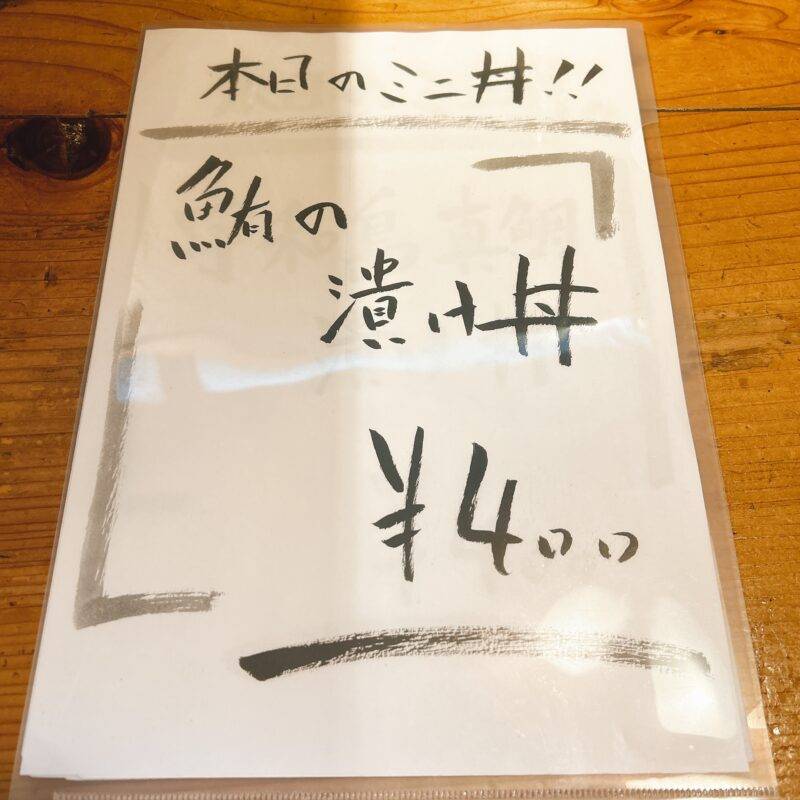 本日のミニ丼!!
鮪の
漬け丼
¥400